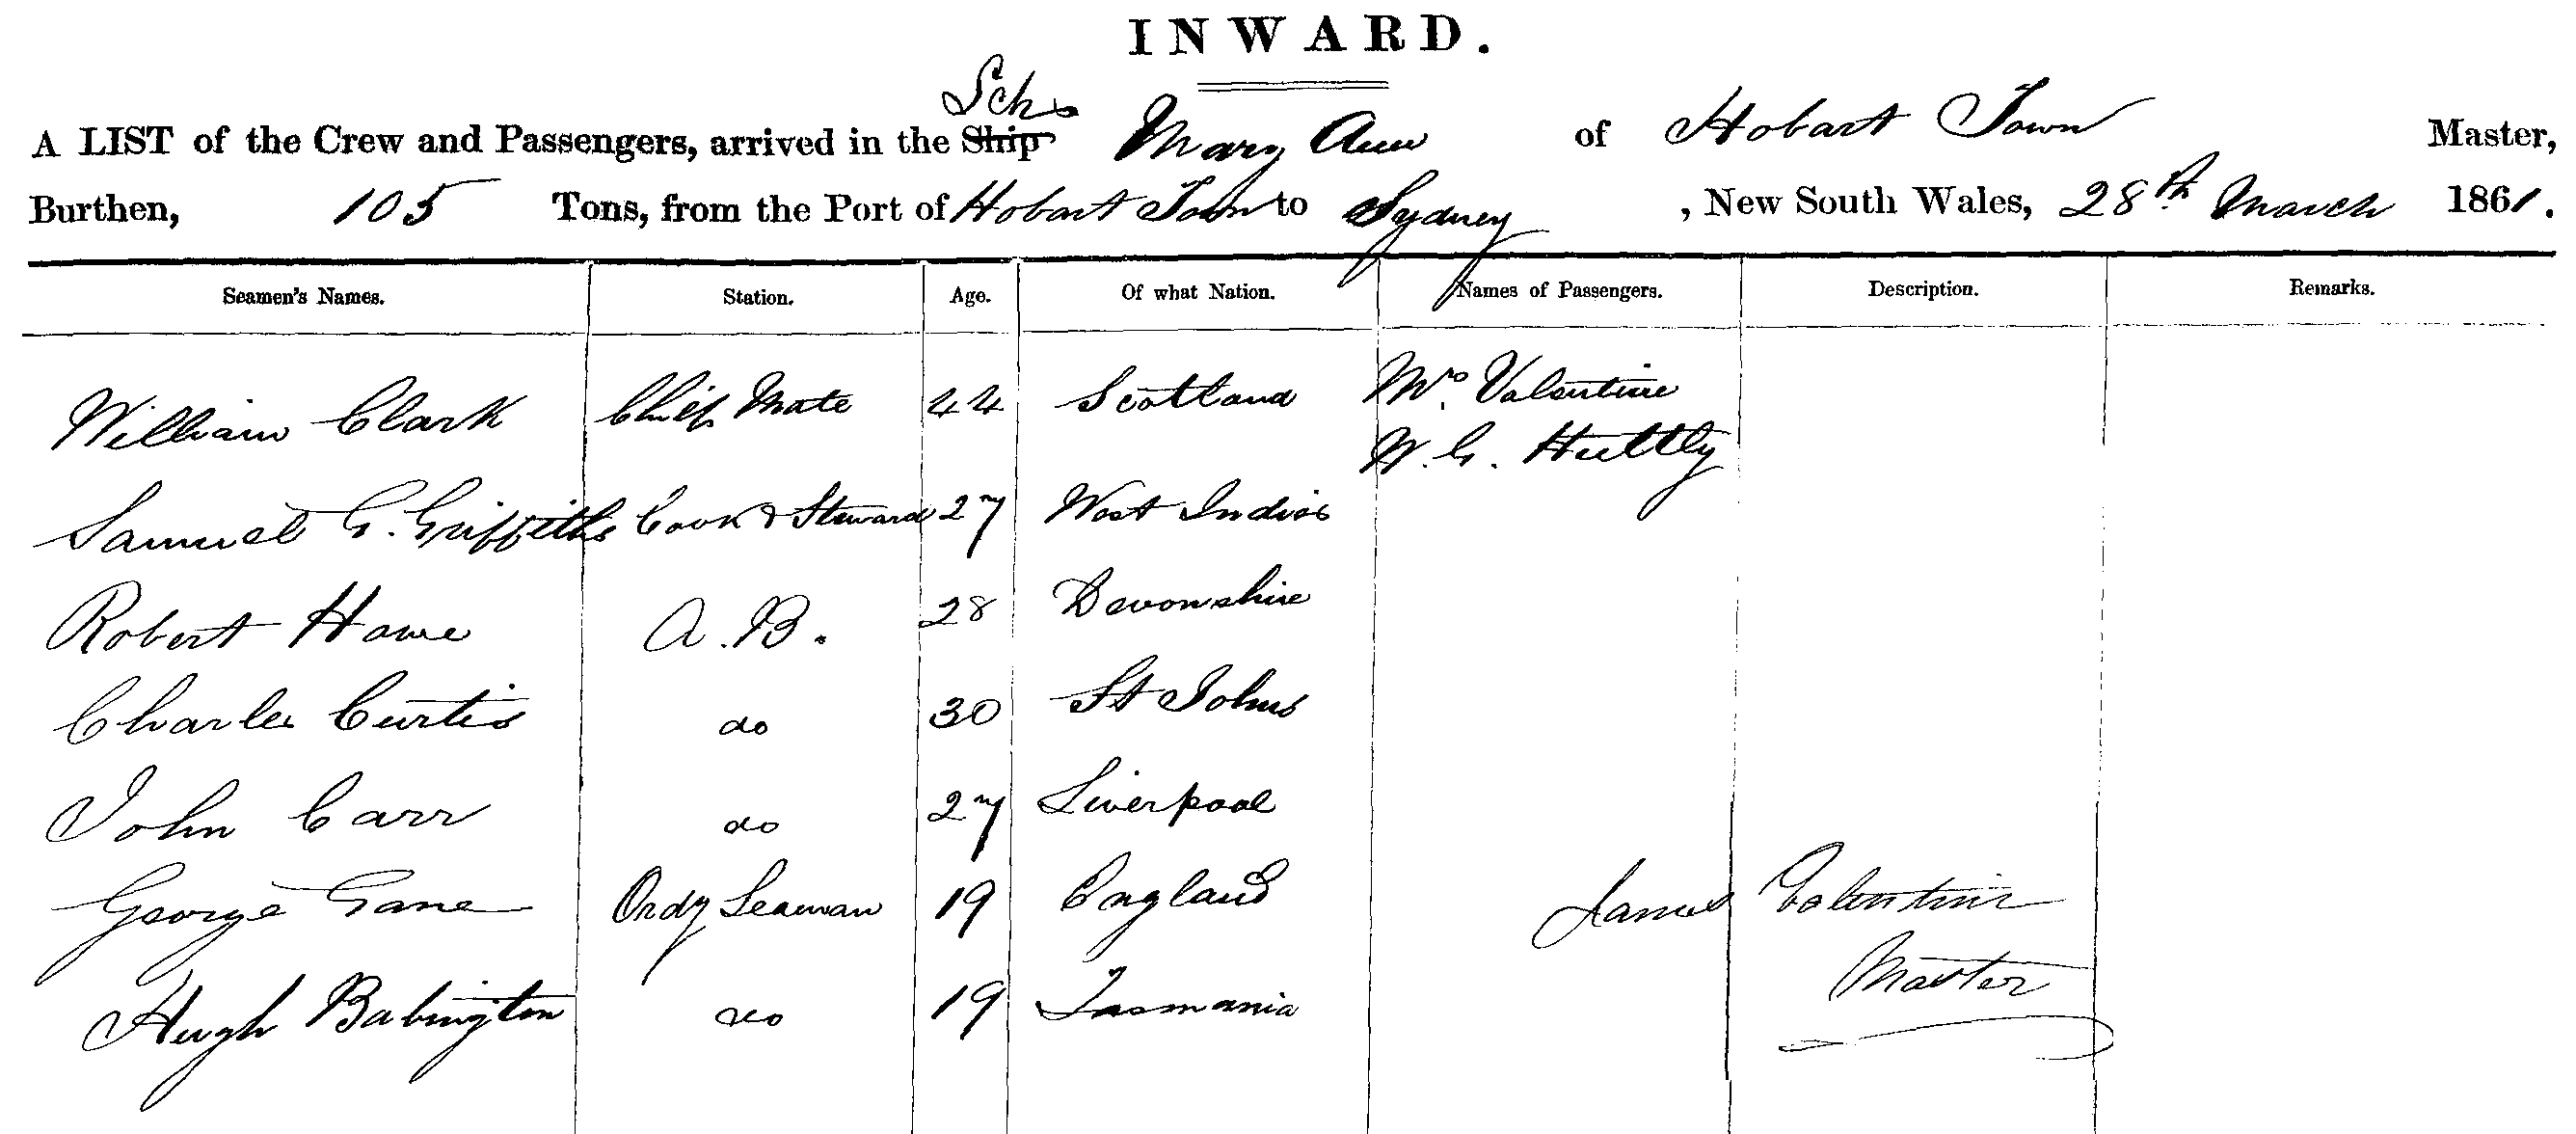 INWARD.
Schr
A LIST of the Crew and Passengers, arrived in the Ship Mary Ann of Hobart Town Master,
Burthen, 105 Tons, from the Port of Hobart Town to Sydney, New South Wales, 28th March 1861.
Seamen's Names. Station. Age. Of what Nation. Names of Passengers. Description. Remarks.
William Clark Chief Mate 44 Scotland Mrs Valentine
W. G. Huttly
Samuel G. Griffiths Cook & Steward 27 West Indies
Robert Hawe A.B. 28 Devonshire
Charles Curtis do 30 St Johns
John Carr do 27 Liverpool
George Gane Ordy Seaman 19 England James Valentine
Master
Hugh Babington do 19 Tasmania